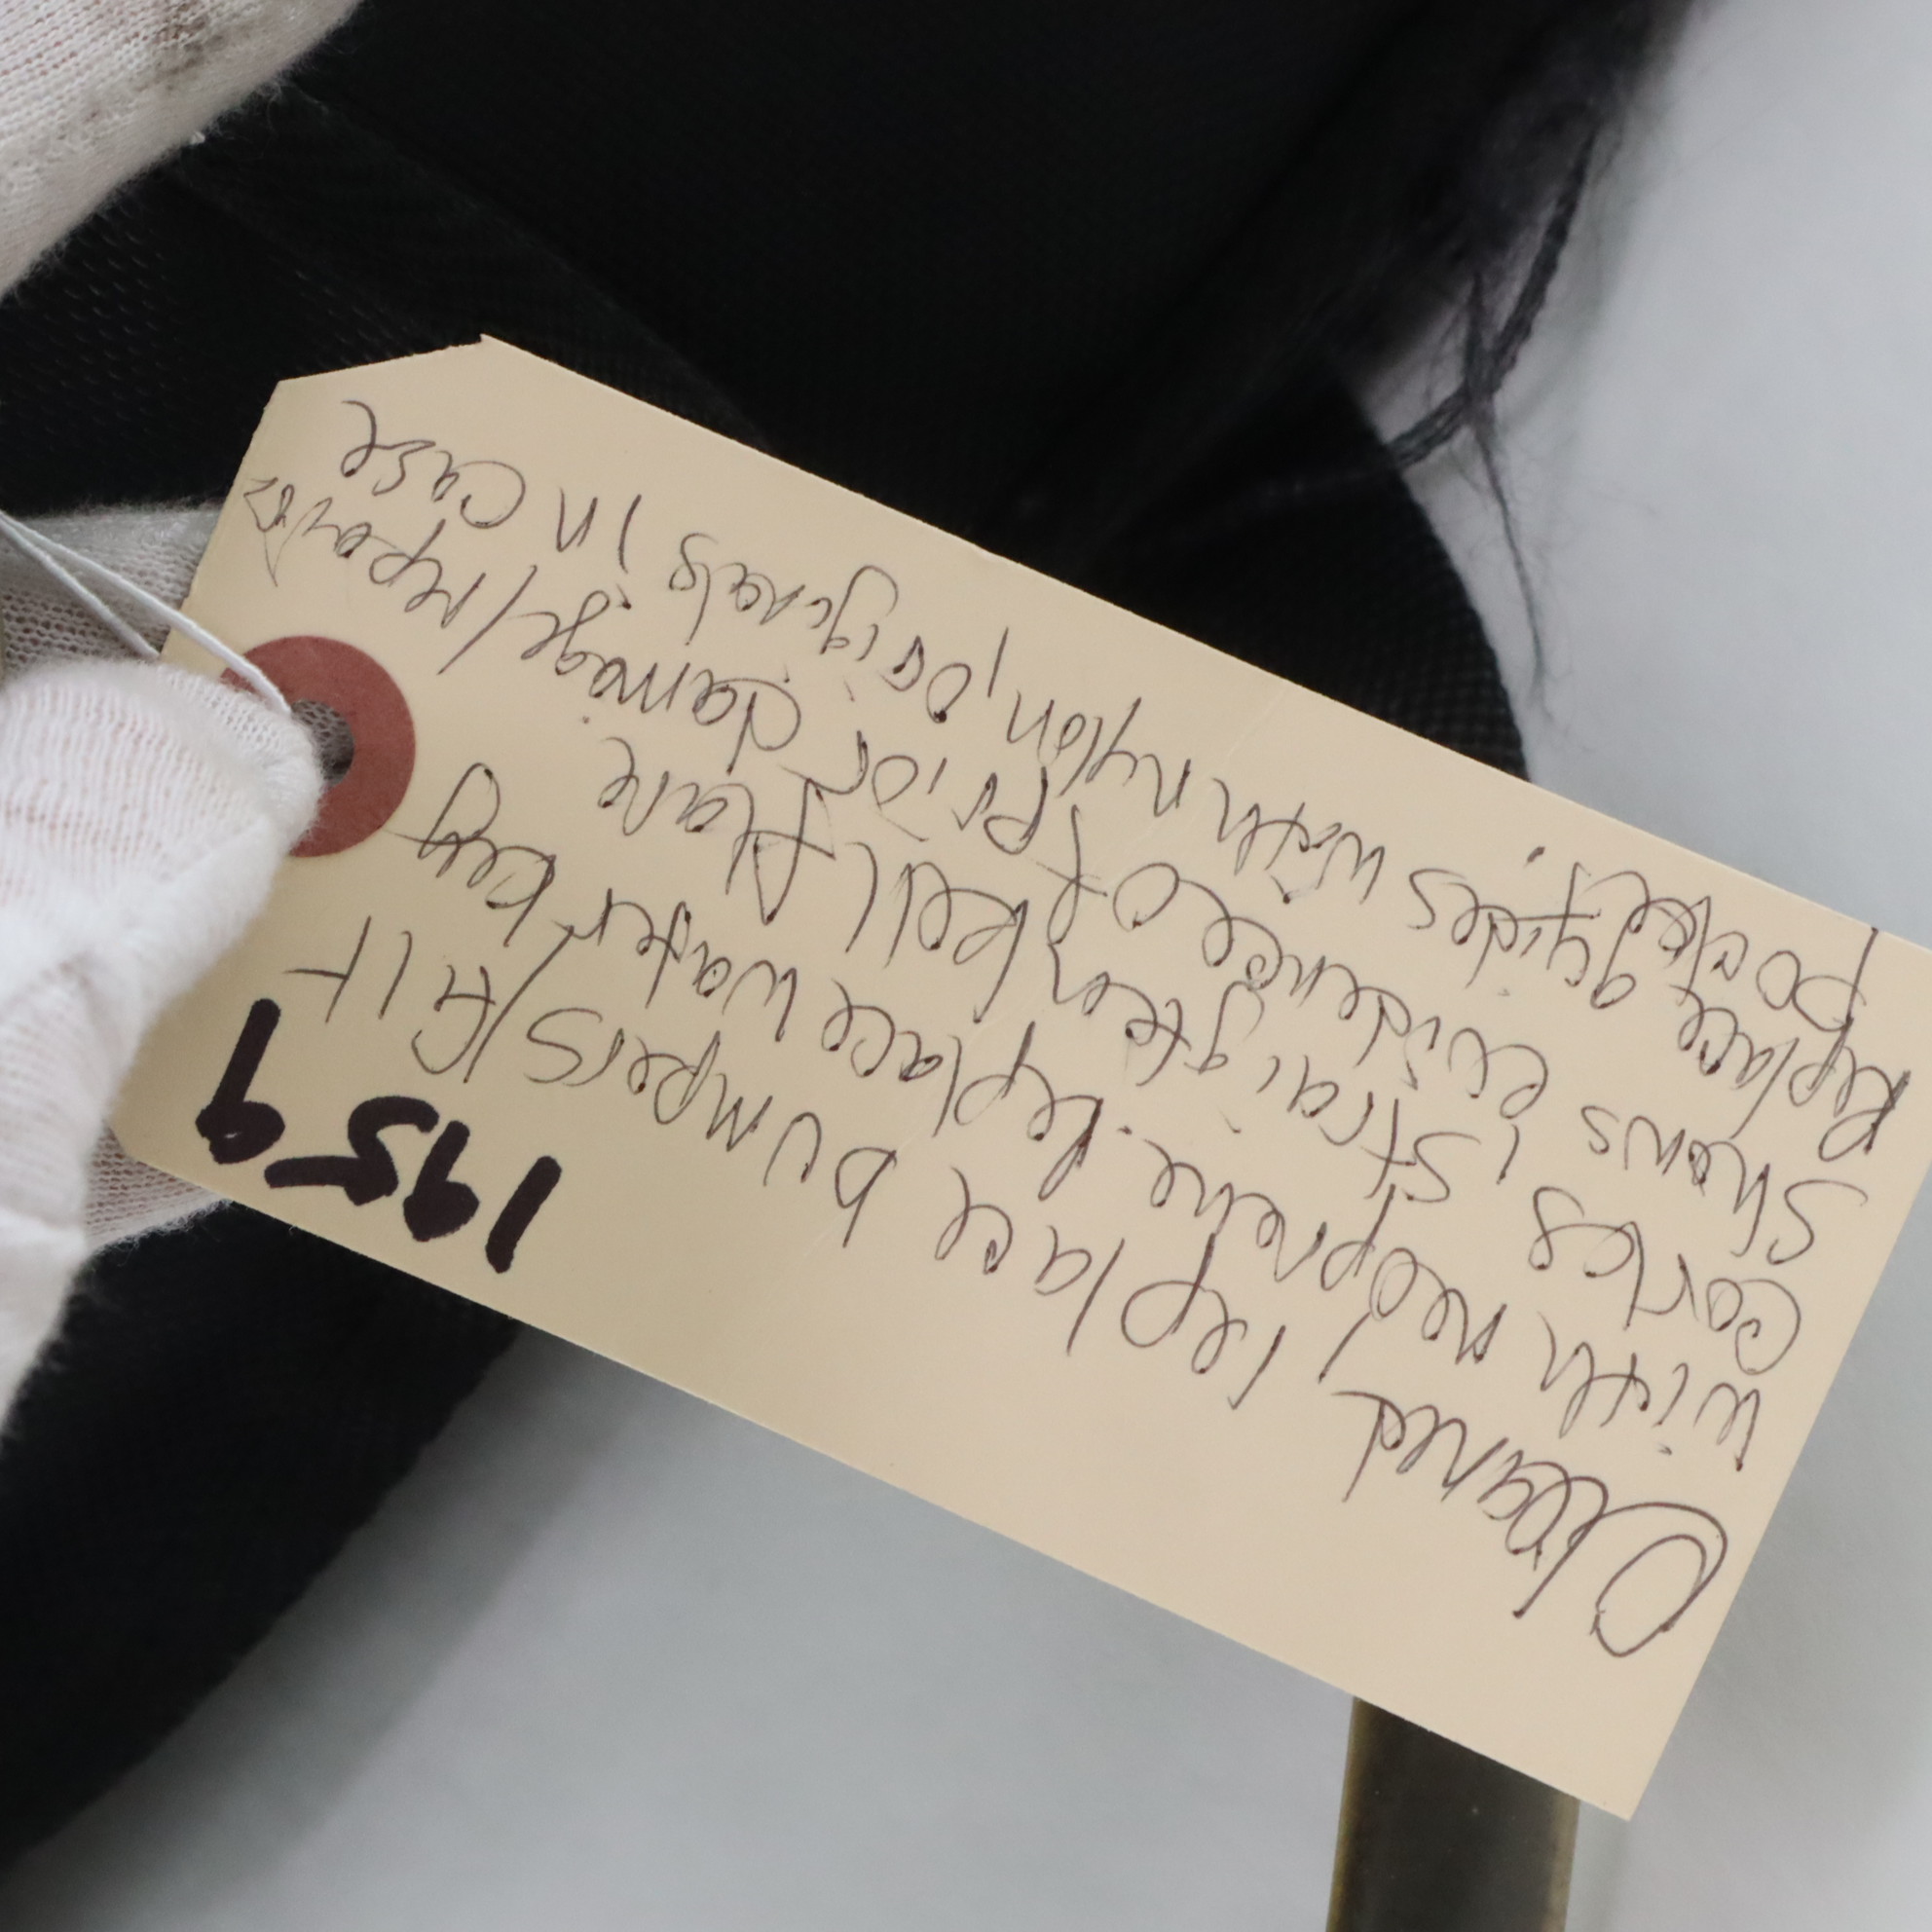 1959
Cleaned replace bumpers/felt
with neoprene. Replace water key
corks, straigten bell flare
shows evidence of prior damage/repairs
Replace guides with nylon, originals in case
pocket.